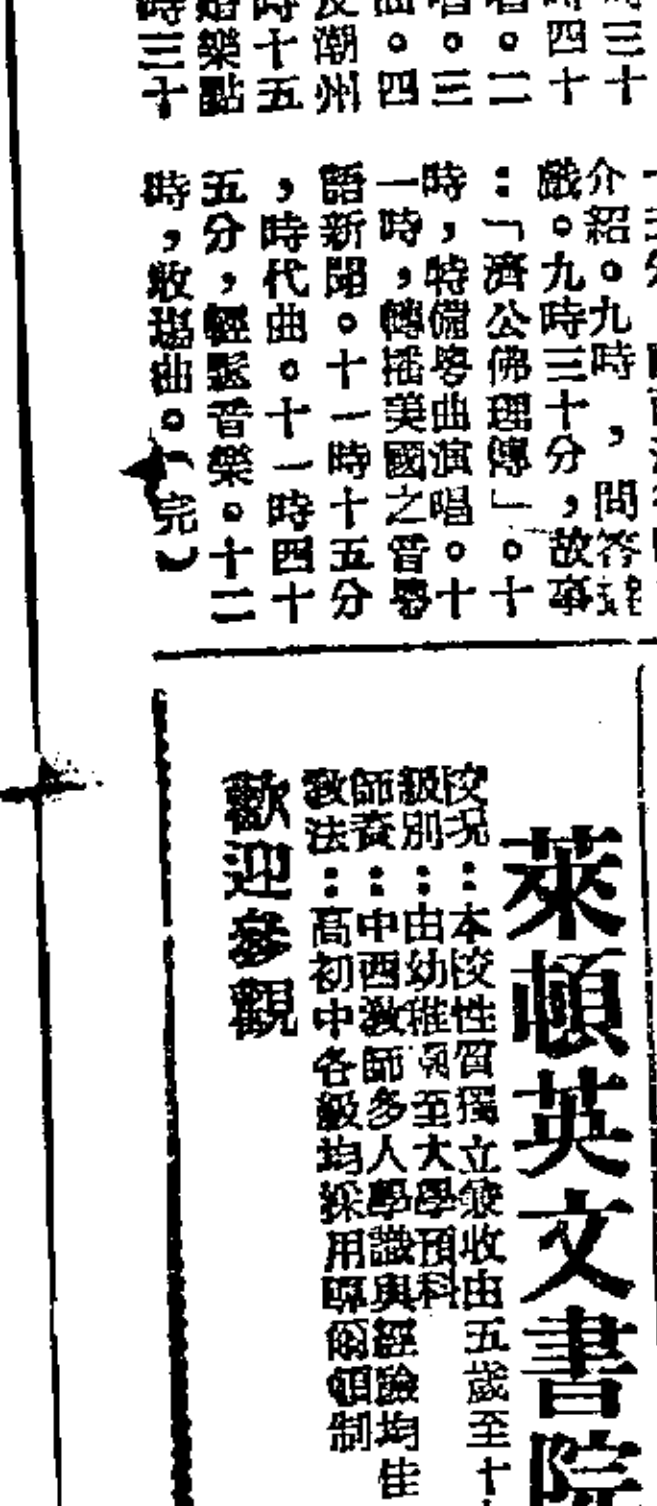 三十
時四十
唱。二
唱。三
曲。四
及潮州
時十五
樂點
時三十
介紹。九時，問答
戲。九時三十分，故事
：「濟公佛理傳」。十
時，特備粵曲演唱。十
一時，轉播美國之音粵
語新聞。十一時十五分
，時代曲。十一時四十
五分，輕鬆音樂。十二
時，散場曲。（完）
萊頓英文書院
校況：本校性質獨立兼收由五歲至十
級別：由幼稚園至大學預科
師資：中西教師多人學識與經驗均佳
教法：高初中各級均採用道爾頓制
歡迎參觀